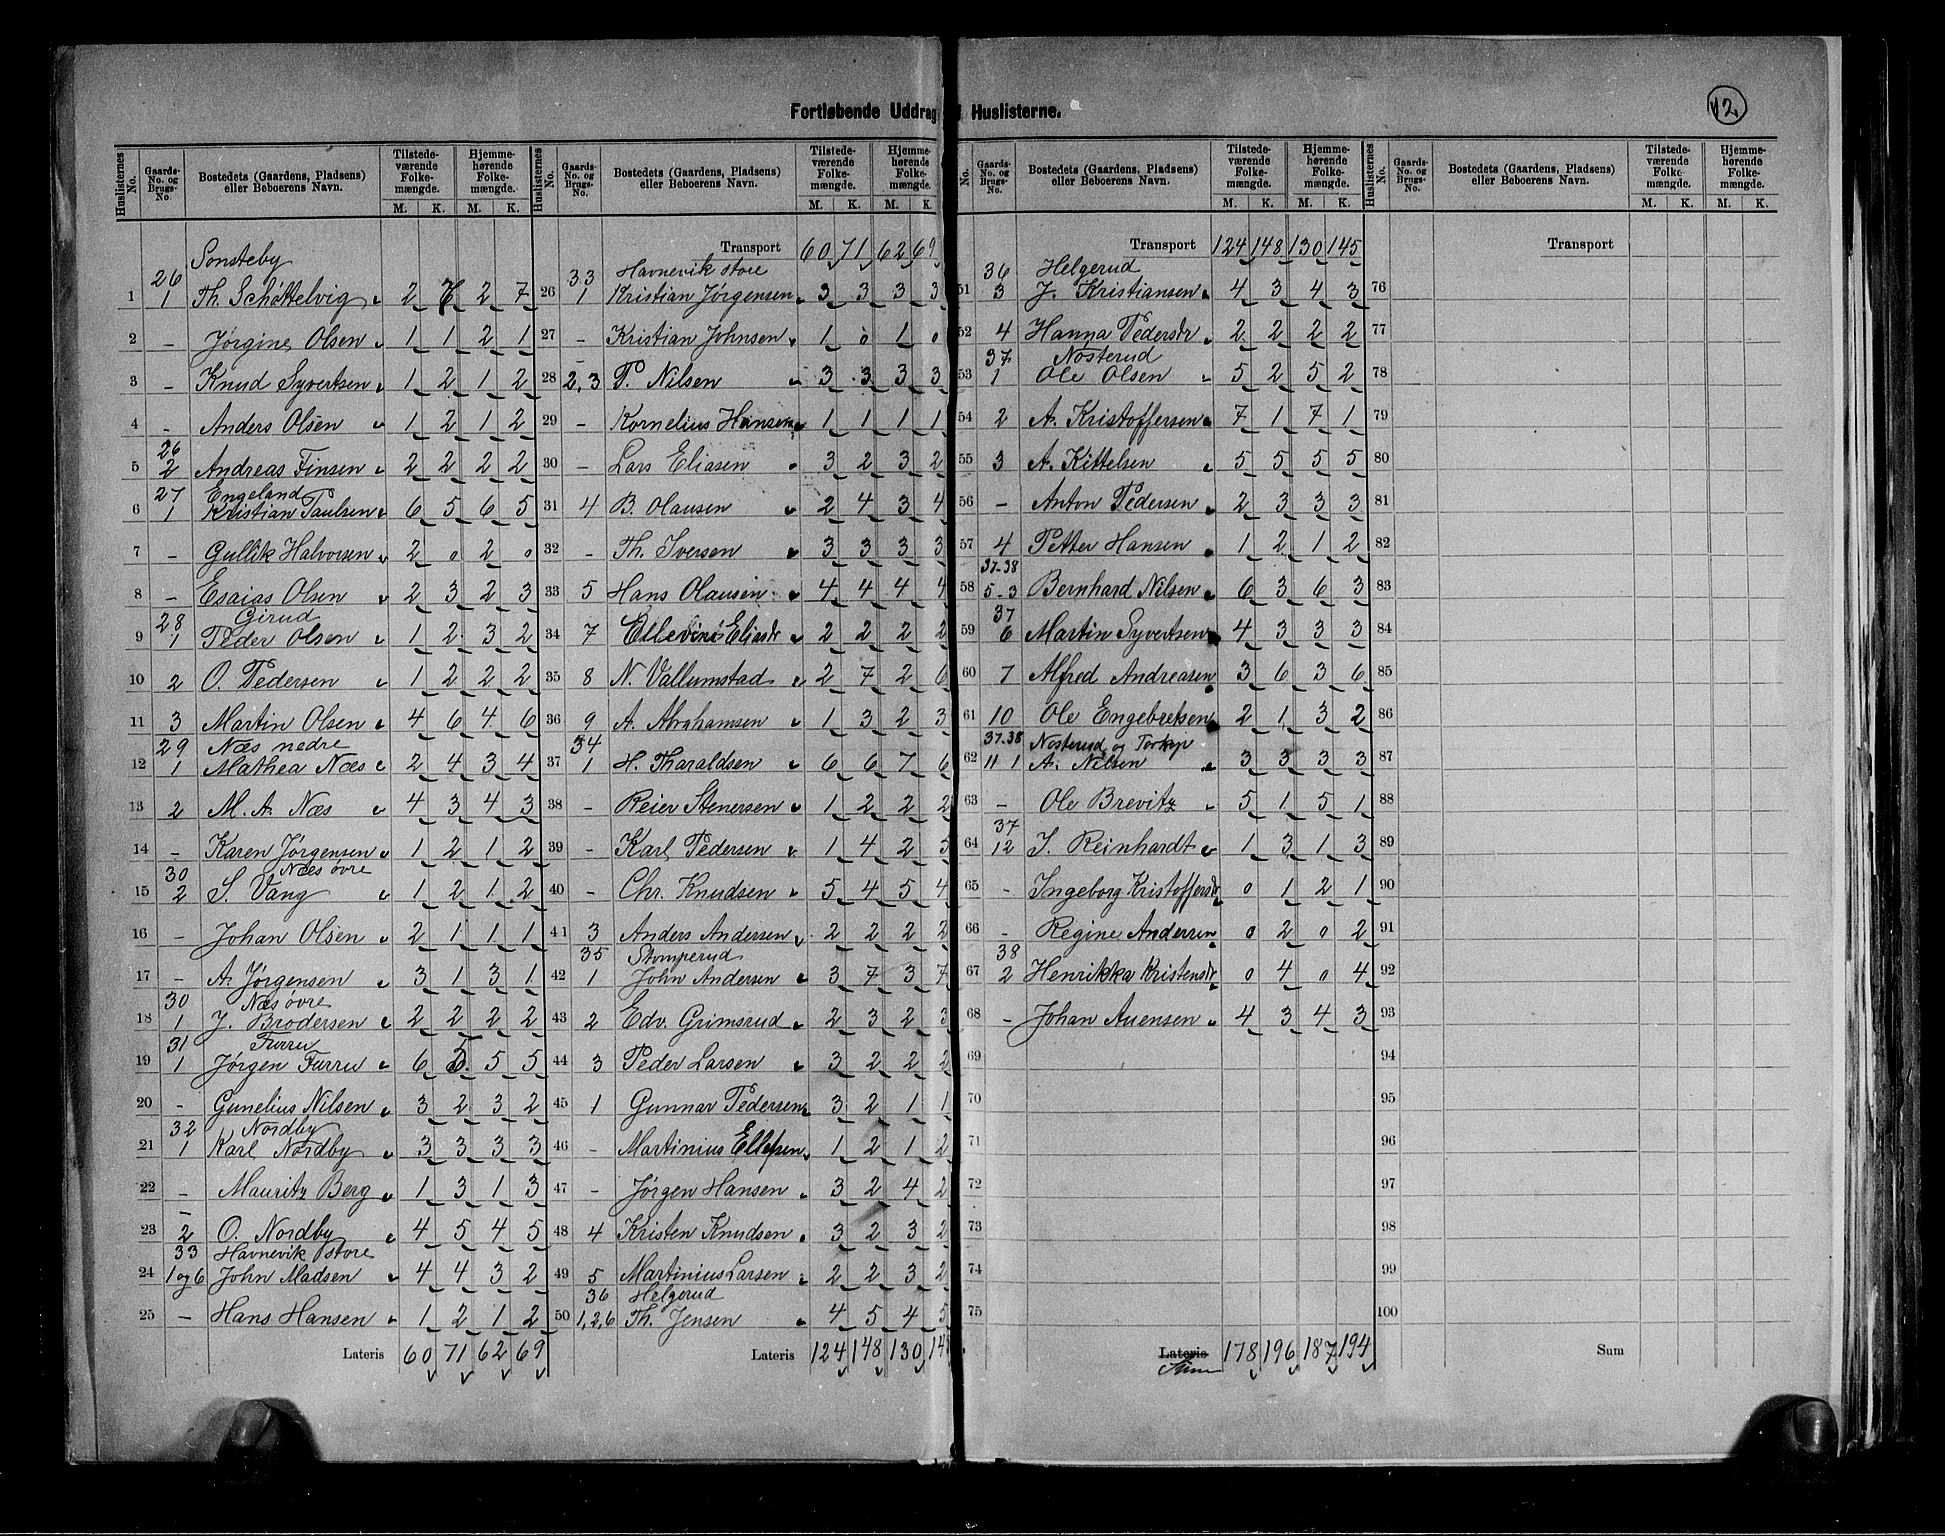 Fortløbende Uddrag Huslisterne.
12
Huslisternes No. Gaards-No. og Brugs-No. Bostedets (Gaardens, Pladsens) eller Beboerens Navn. Tilstedeværende Folkemængde. M. K. Hjemmehørende Folkemængde. M. K.
26 Sonsteby
1 1 Th. Schøttelvig 2 7 2 7
2 – Jørgine Olsen 1 1 2 1
3 – Knud Syvertsen 1 2 1 2
4 – Anders Olsen 1 2 1 2
26
5 2 Andreas Finsen 2 2 2 2
27 Engeland
6 1 Kristian Paulsen 6 5 6 5
7 – Gullik Halvorsen 2 0 2 0
8 – Esaias Olsen 2 3 2 3
28 Girud
9 1 Peder Olsen 1 2 3 2
10 2 O. Pedersen 1 2 2 2
11 3 Martin Olsen 4 6 4 6
29 Næs nedre
12 1 Mathea Næs 2 4 3 4
13 2 M. A. Næs 4 3 4 3
14 – Karen Jørgensen 1 2 1 2
30 Næs øvre
15 2 S. Vang 1 2 1 2
16 – Johan Olsen 2 1 1 1
17 – A. Jørgensen 3 1 3 1
30 Næs øvre
18 1 J. Brodersen 2 2 2 2
31 Furru
19 1 Jørgen Furru 6 5 5 5
20 – Gunelius Nilsen 3 2 3 2
32 Nordby
21 1 Karl Nordby 3 3 3 3
22 – Mauritz Berg 1 3 1 3
23 2 O. Nordby 4 5 4 5
33 Havnevik store
24 1 og 6 John Madsen 4 4 3 2
25 – Hans Hansen 1 2 1 2
Lateris 60 71 62 69
Huslisternes No. Gaards-No. og Brugs-No. Bostedets (Gaardens, Pladsens) eller Beboerens Navn. Tilstedeværende Folkemængde. M. K. Hjemmehørende Folkemængde. M. K.
Transport 60 71 62 69
33 Havnevik store
26 1 Kristian Jørgensen 3 3 3 3
27 – Kristian Johnsen 1 0 1 0
28 2,3 P. Nilsen 3 3 3 3
29 – Kornelius Hansen 1 1 1 1
30 – Lars Eliasen 3 2 3 2
31 4 B. Olausen 2 4 3 4
32 – Th. Iversen 3 3 3 3
33 5 Hans Olausen 4 4 4 4
34 7 Eliasdr 2 2 2 2
35 8 N. Vallumstad 2 7 2 6
36 9 A. Abrahamsen 1 3 2 3
34
37 1 H. Tharaldsen 6 6 7 6
38 – Reier Stenersen 1 2 2 2
39 – Karl Pedersen 1 4 2 5
40 – Chr. Knudsen 5 4 5 4
41 3 Anders Andersen 2 2 2 2
35 Stomperud
42 1 John Andersen 3 7 3 7
43 2 Edv. Grimsrud 2 3 2 3
44 3 Peder Larsen 3 2 2 2
45 1 Gunnar Pedersen 3 2 1 1
46 – Martinius Ellefsen 1 2 1 2
47 – Jørgen Hansen 3 2 4 2
48 4 Kristen Knudsen 3 2 3 2
49 5 Martinius Larsen 2 2 3 2
36 Helgerud
50 1,2,6 Th. Jensen 4 5 4 5
Lateris 124 148 130 145
No. Gaards-No. og Brugs-No. Bostedets (Gaardens, Pladsens) eller Beboerens Navn. Tilstedeværende Folkemængde. M. K. Hjemmehørende Folkemængde. M. K.
Transport 124 148 130 145
36 Helgerud
51 3 J. Kristiansen 4 3 4 3
52 4 Hanna Pedersdr 2 2 2 2
37 Nosterud
53 1 Ole Olsen 5 2 5 2
54 2 A. Kristoffersen 7 1 7 1
55 3 A. Kittelsen 5 5 5 5
56 – Anton Pedersen 2 3 3 3
57 4 Petter Hansen 1 2 1 2
37-38
58 5-3 Bernhard Nilsen 6 3 6 3
37
59 6 Martin Syvertsen 4 3 3 3
60 7 Alfred Andreasen 3 6 3 6
61 10 Ole Engebretsen 2 1 3 2
37-38 Nosterud og Torkop
62 11 1 A. Nilsen 3 3 3 3
63 – Ole Brevitz 5 1 5 1
37
64 12 J. Reinhardt 1 3 1 3
65 – Ingeborg Kristoffersdr 0 1 2 1
66 – Regine Andersen 0 2 0 2
38
67 2 Henrikka Kristensdr 0 4 0 4
68 – Johan Auensen 4 3 4 3
69
70
71
72
73
74
75
Lateris
Sum 178 196 187 194
Huslisternes No. Gaards-No. og Brugs-No. Bostedets (Gaardens, Pladsens) eller Beboerens Navn. Tilstedeværende Folkemængde. M. K. Hjemmehørende Folkemængde. M. K.
Transport
76
77
78
79
80
81
82
83
84
85
86
87
88
89
90
91
92
93
94
95
96
97
98
99
100
Sum